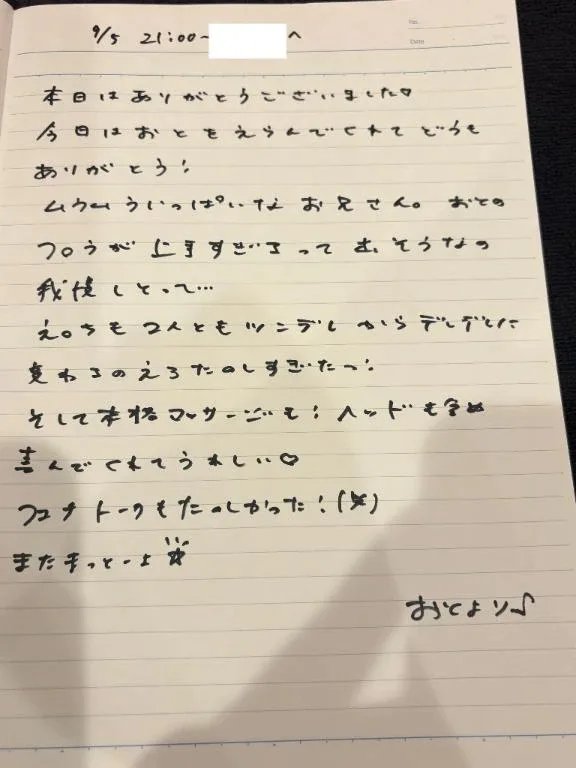 No.
Date
9/5 21:00~ へ
本日はありがとうございました♡
今日はおともえらんでくれてどうも
ありがとう!
ムラムラいっぱいなお兄さん。おとの
フロうが上手すぎるって そうなの
我慢しとって…
も2人ともツンデレからデレデレに
変わるのえろたのしすぎたっ!
そして本格マッサージも!ヘッドも含め
喜んでくれてうれしい♡
トークもたのしかった!(笑)
またまっとーよ☆
おとより♪